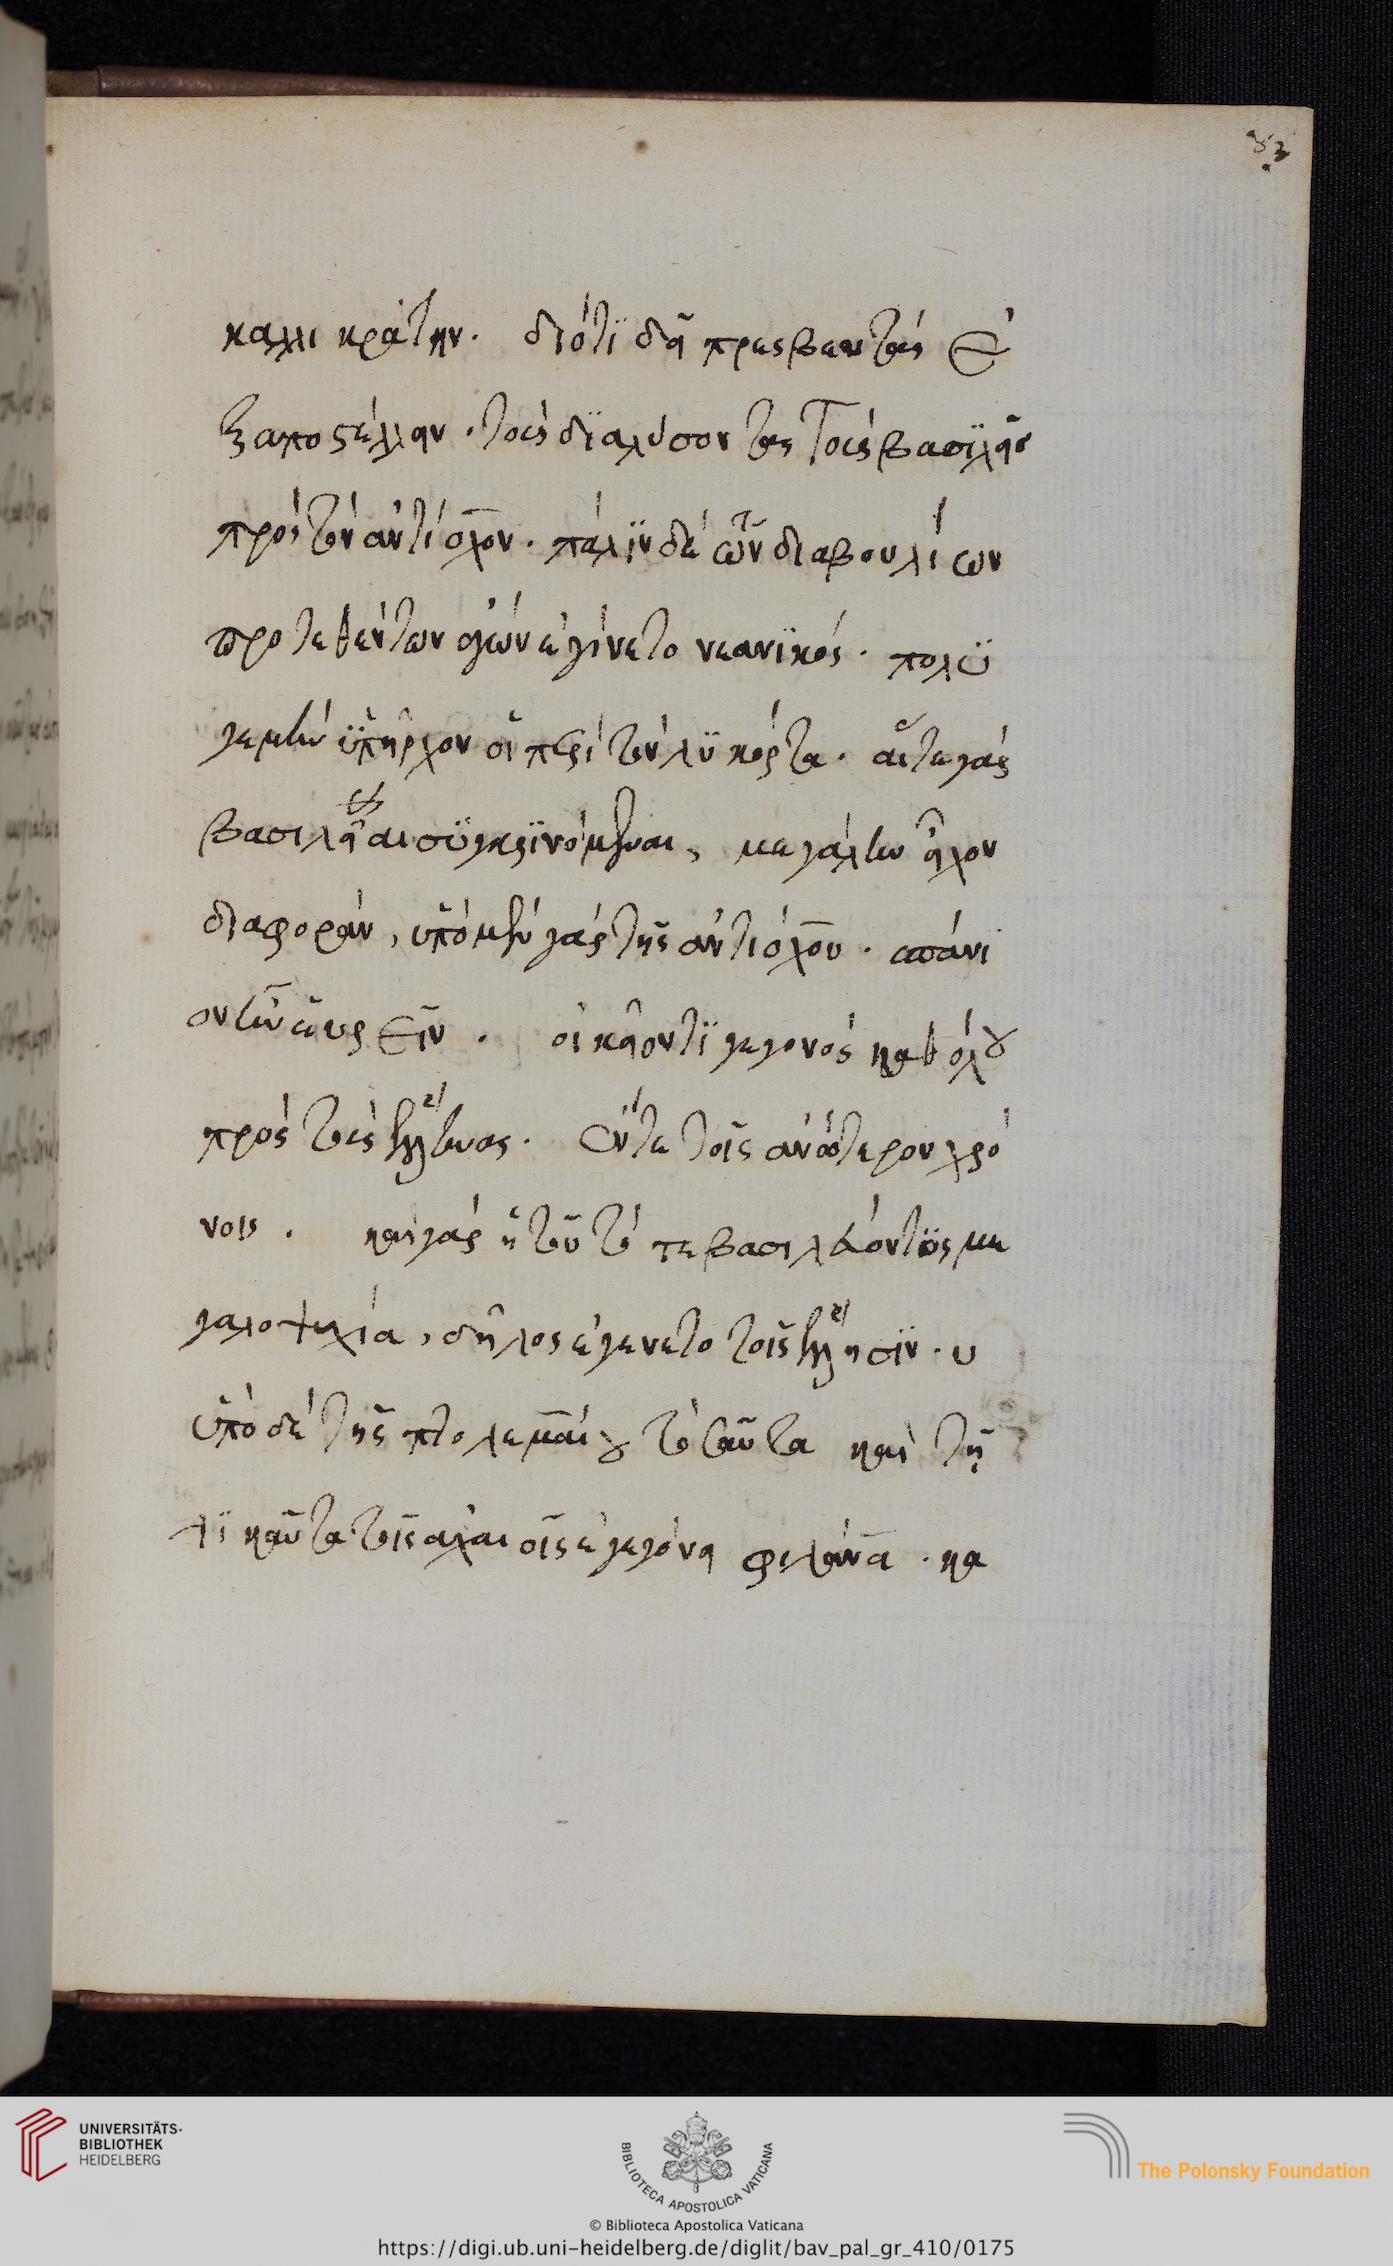 83
καλλικράτην. διότι δεῖ πρεσβευτὰς ἐ
ξαποστέλλειν. τοὺς διαλύσοντας τοὺς βασιλεῖς
πρὸς τὸν ἀντίοχον. πάλιν δὲ τῶν διαβουλίων
προτεθέντων ἀγὼν ἐγίνετο νεανικός. πολύ
γε μὴν ὑπῆρχον οἱ περὶ τὸν λυκόρτα. αἵ τε γὰρ
βασιλεῖαι συγκρινόμεναι, μεγάλην εἶχον
διαφοράν, ὑπὸ μὲν γὰρ τῆς ἀντιόχου. σπάνι
ον ἦν εὑρεῖν. οἰκεῖόν τι γεγονὸς καθόλου
πρὸς τοὺς ἕλληνας. ἔν τε τοῖς ἀνώτερον χρό
νοις. καὶ γὰρ ἡ τοῦ τότε βασιλεύοντος με
γαλοψυχία, δῆλος ἐγένετο τοῖς ἕλλησιν. υ
ὑπὸ δὲ τῆς πτολεμαίου
φιλάνα. κα
UNIVERSITÄTS-
BIBLIOTHEK
HEIDELBERG
BIBLIOTECA APOSTOLICA VATICANA
The Polonsky Foundation
© Biblioteca Apostolica Vaticana
https://digi.ub.uni-heidelberg.de/diglit/bav_pal_gr_410/0175